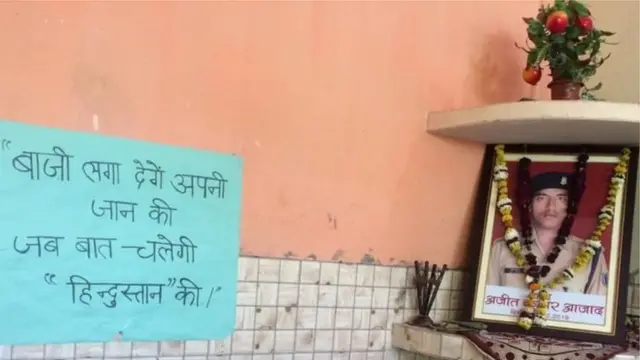 "बाजी लगा देगें अपनी
जान की
जब बात चलेगी
"हिन्दुस्तान" की।"
अजीत कुमार आजाद